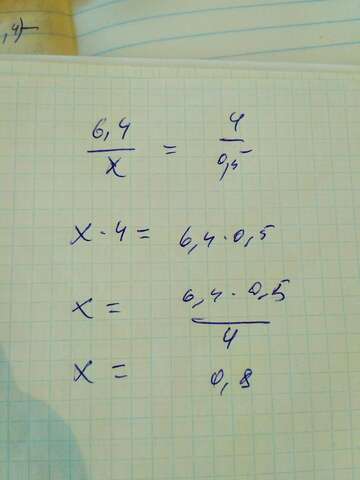 ,4)
6,4/x = 4/0,5
x · 4 = 6,4 · 0,5
x = 6,4 · 0,5/4
x = 0,8